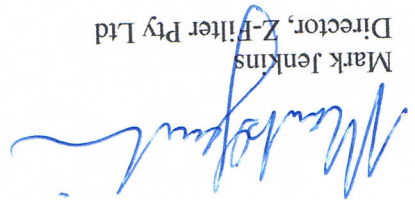 Mark Jenkins
Director, Z-Filter Pty Ltd